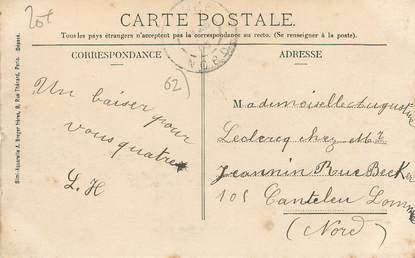 20f
CARTE POSTALE.
Tous les pays étrangers n'acceptent pas la correspondance au recto. (Se renseigner à la poste).
CORRESPONDANCE
ADRESSE
NORD
62
Un baiser pour
vous quatre
L. H
Mademoiselle Augustine
Leclercq chez Mr
Jeannin Rue Becker
101 Canteleu Lomme
(Nord)
Simi-Aquarelle A. Breger frères, 9, Rue Thénard, Paris. Déposé.